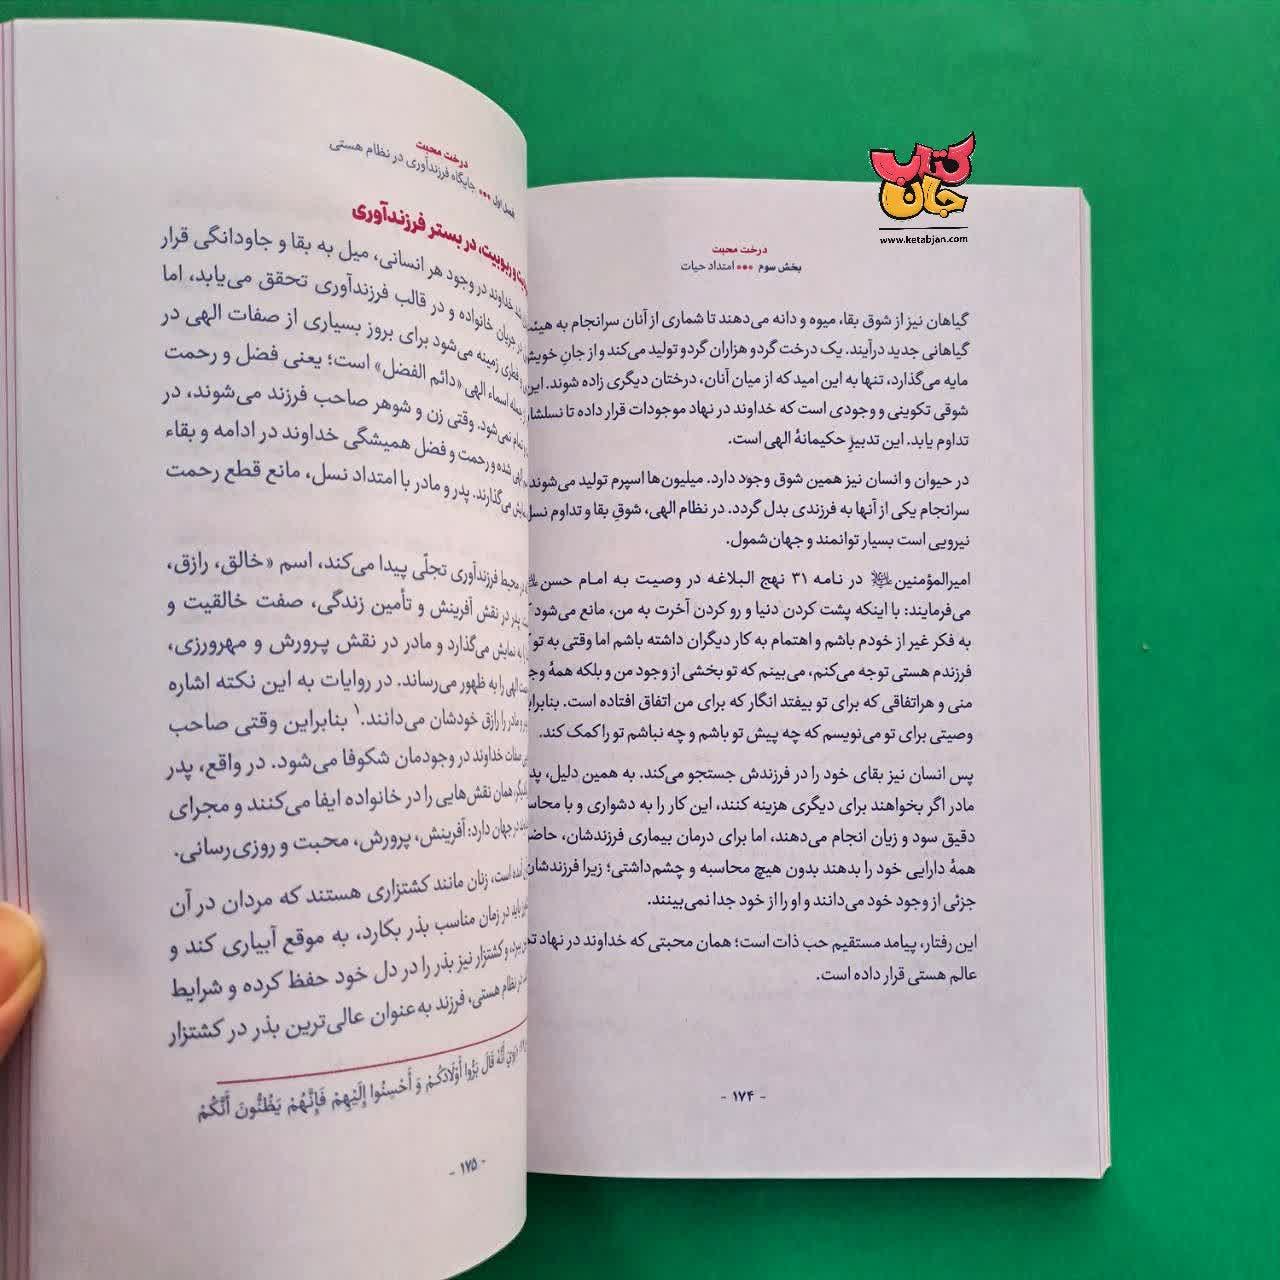 کتاب
جان
www.ketabjan.com
درخت محبت
بخش سوم ••• امتداد حیات
گیاهان نیز از شوق بقا، میوه و دانه می‌دهند تا شماری از آنان سرانجام به هیئت
گیاهانی جدید درآیند. یک درخت گردو هزاران گردو تولید می‌کند و از جانِ خویش
مایه می‌گذارد، تنها به این امید که از میان آنان، درختان دیگری زاده شوند. این
شوقی تکوینی و وجودی است که خداوند در نهاد موجودات قرار داده تا نسلشان
تداوم یابد. این تدبیرِ حکیمانهٔ الهی است.
در حیوان و انسان نیز همین شوق وجود دارد. میلیون‌ها اسپرم تولید می‌شوند
سرانجام یکی از آنها به فرزندی بدل گردد. در نظام الهی، شوقِ بقا و تداوم نسل
نیرویی است بسیار توانمند و جهان‌شمول.
امیرالمؤمنین در نامه ۳۱ نهج البلاغه در وصیت به امام حسن
می‌فرمایند: با اینکه پشت کردن دنیا و رو کردن آخرت به من، مانع می‌شود
به فکر غیر از خودم باشم و اهتمام به کار دیگران داشته باشم اما وقتی به تو
فرزندم هستی توجه می‌کنم، می‌بینم که تو بخشی از وجود من و بلکه همهٔ
منی و هراتفاقی که برای تو بیفتد انگار که برای من اتفاق افتاده است. بنابراین
وصیتی برای تو می‌نویسم که چه پیش تو باشم و چه نباشم تو را کمک کند.
پس انسان نیز بقای خود را در فرزندش جستجو می‌کند. به همین دلیل،
مادر اگر بخواهند برای دیگری هزینه کنند، این کار را به دشواری و با
دقیق سود و زیان انجام می‌دهند، اما برای درمان بیماری فرزندشان،
همهٔ دارایی خود را بدهند بدون هیچ محاسبه و چشم‌داشتی؛ زیرا فرزندشان
جزئی از وجود خود می‌دانند و او را از خود جدا نمی‌بینند.
این رفتار، پیامد مستقیم حب ذات است؛ همان محبتی که خداوند در نهاد
عالم هستی قرار داده است.
- ۱۷۴ -
درخت محبت
فصل اول ••• جایگاه فرزندآوری در نظام هستی
و ربوبیت، در بستر فرزندآوری
شد، خداوند در وجود هر انسانی، میل به بقا و جاودانگی قرار
در جریان خانواده و در قالب فرزندآوری تحقق می‌یابد، اما
و فطری زمینه می‌شود برای بروز بسیاری از صفات الهی در
جمله اسماء الهی «دائم الفضل» است؛ یعنی فضل و رحمت
تمام نمی‌شود. وقتی زن و شوهر صاحب فرزند می‌شوند، در
الهی شده و رحمت و فضل همیشگی خداوند در ادامه و بقاء
می‌گذارند. پدر و مادر با امتداد نسل، مانع قطع رحمت
در محیط فرزندآوری تجلّی پیدا می‌کند، اسم «خالق، رازق،
پدر در نقش آفرینش و تأمین زندگی، صفت خالقیت و
به نمایش می‌گذارد و مادر در نقش پرورش و مهرورزی،
الهی را به ظهور می‌رساند. در روایات به این نکته اشاره
و مادر را رازق خودشان می‌دانند.۱ بنابراین وقتی صاحب
صفات خداوند در وجودمان شکوفا می‌شود. در واقع، پدر
همان نقش‌هایی را در خانواده ایفا می‌کنند و مجرای
در جهان دارد: آفرینش، پرورش، محبت و روزی‌رسانی.
آمده است، زنان مانند کشتزاری هستند که مردان در آن
باید در زمان مناسب بذر بکارد، به موقع آبیاری کند و
و کشتزار نیز بذر را در دل خود حفظ کرده و شرایط
در نظام هستی، فرزند به‌عنوان عالی‌ترین بذر در کشتزار
أَنَّهُ قَالَ بَرُّوا أَوْلَادَكُمْ وَ أَحْسِنُوا إِلَيْهِمْ فَإِنَّهُمْ يَظُنُّونَ أَنَّكُمْ
- ۱۷۵ -